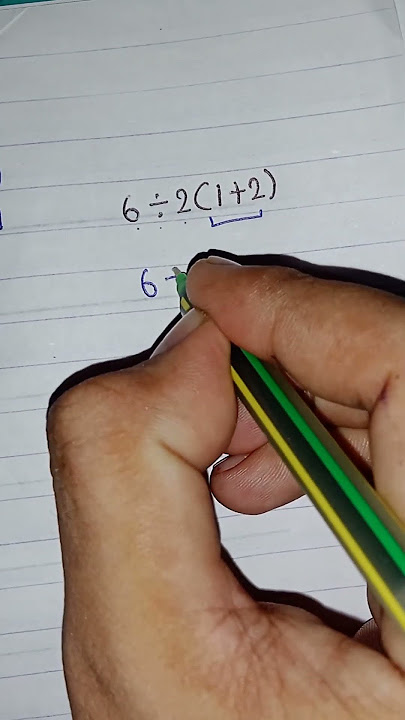 6 ÷ 2(1+2)
6